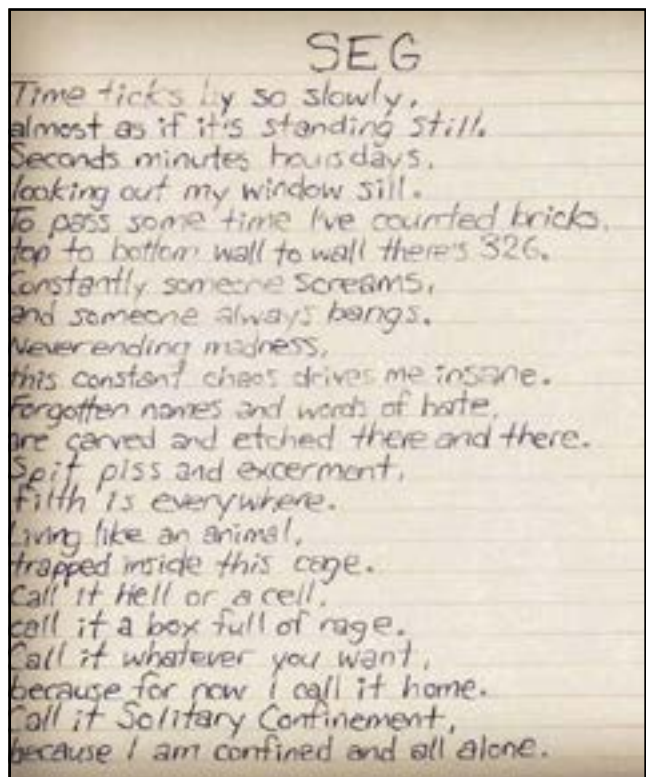 SEG
Time ticks by so slowly,
almost as if it's standing still.
Seconds minutes hours days,
looking out my window sill.
To pass some time I've counted bricks,
top to bottom wall to wall there's 326.
Constantly someone screams,
and someone always bangs.
Never ending madness,
this constant chaos drives me insane.
Forgotten names and words of hate,
are carved and etched there and there.
Spit piss and excerment,
filth is everywhere.
Living like an animal,
trapped inside this cage.
Call it Hell or a cell,
call it a box full of rage.
Call it whatever you want,
because for now I call it home.
Call it Solitary Confinement,
because I am confined and all alone.